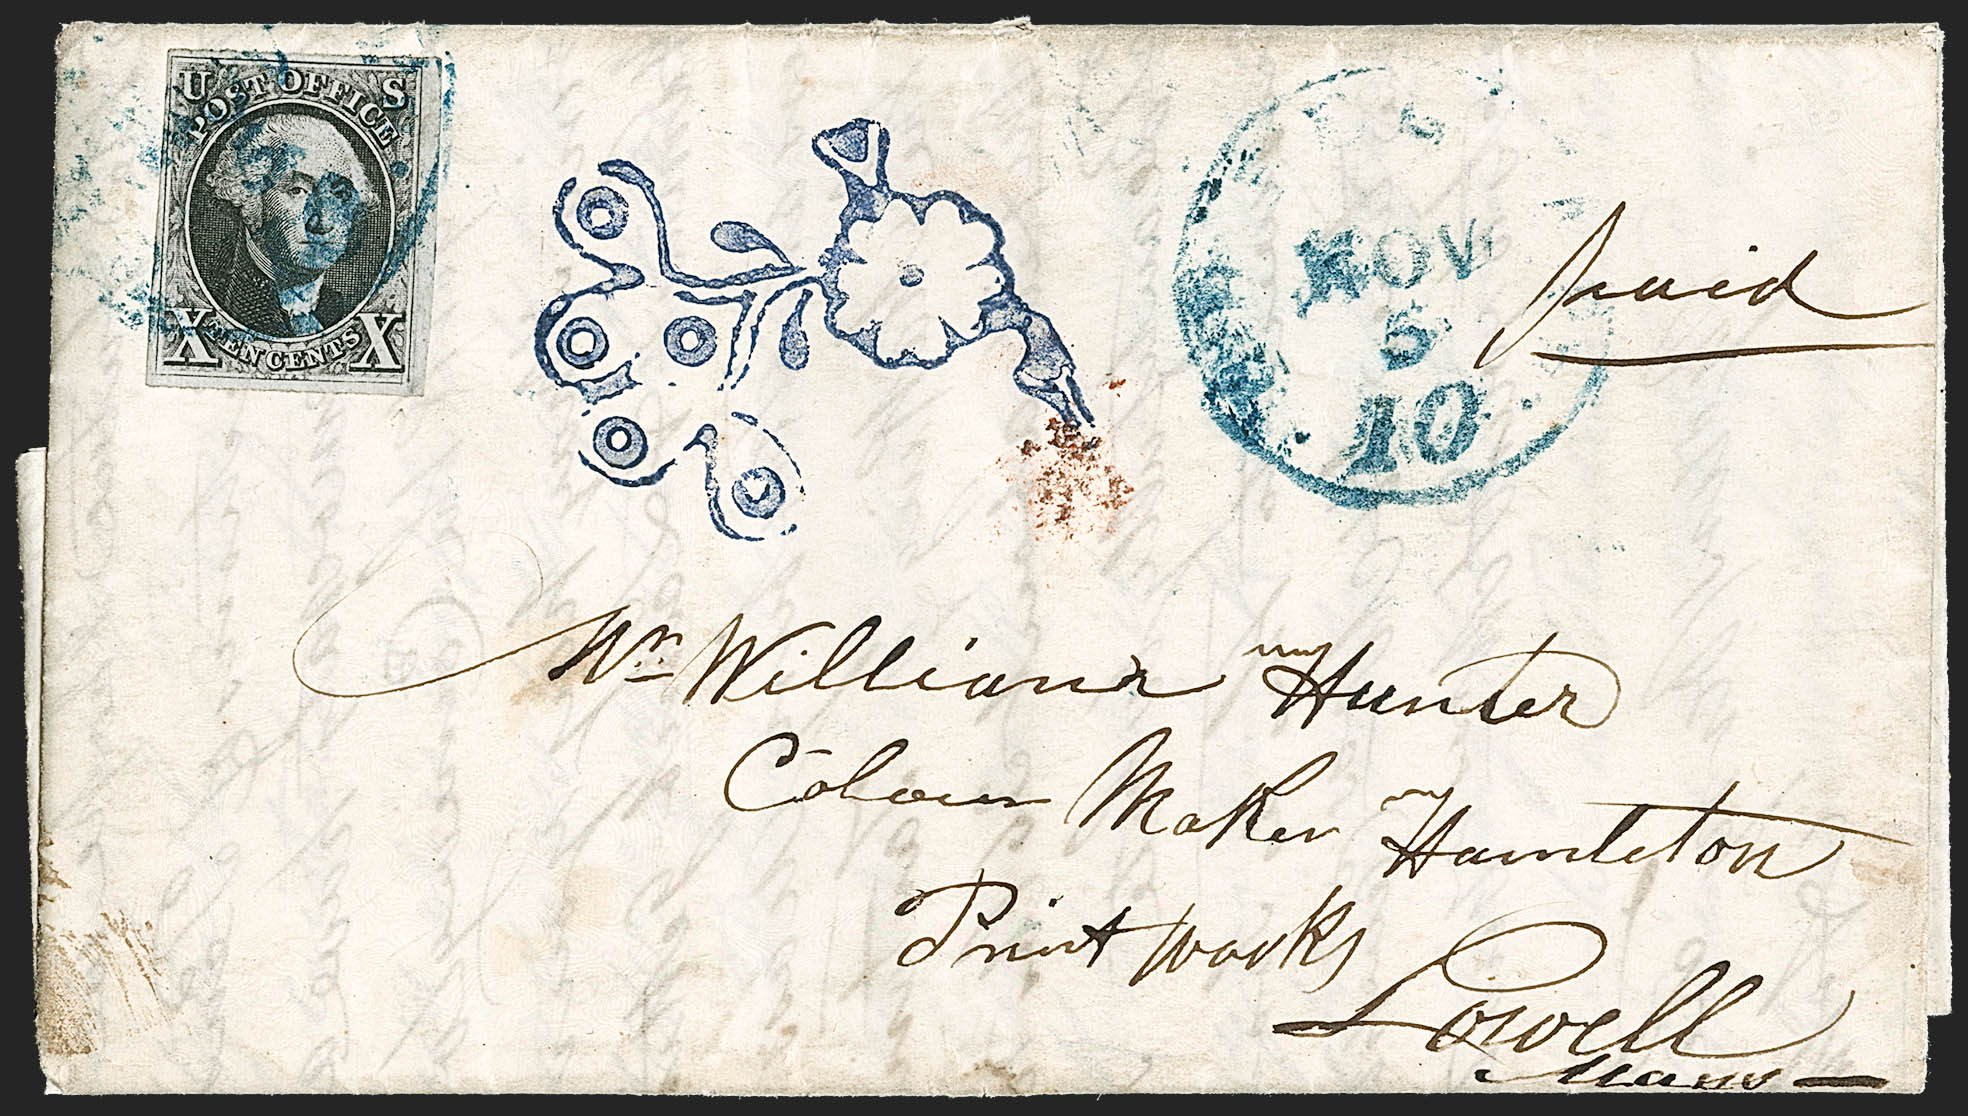 U S
POST OFFICE
X TEN CENTS X
NOV
5
10
paid
Mr William Hunter
Colour Maker Hamilton
Print Works
Lowell
Mass